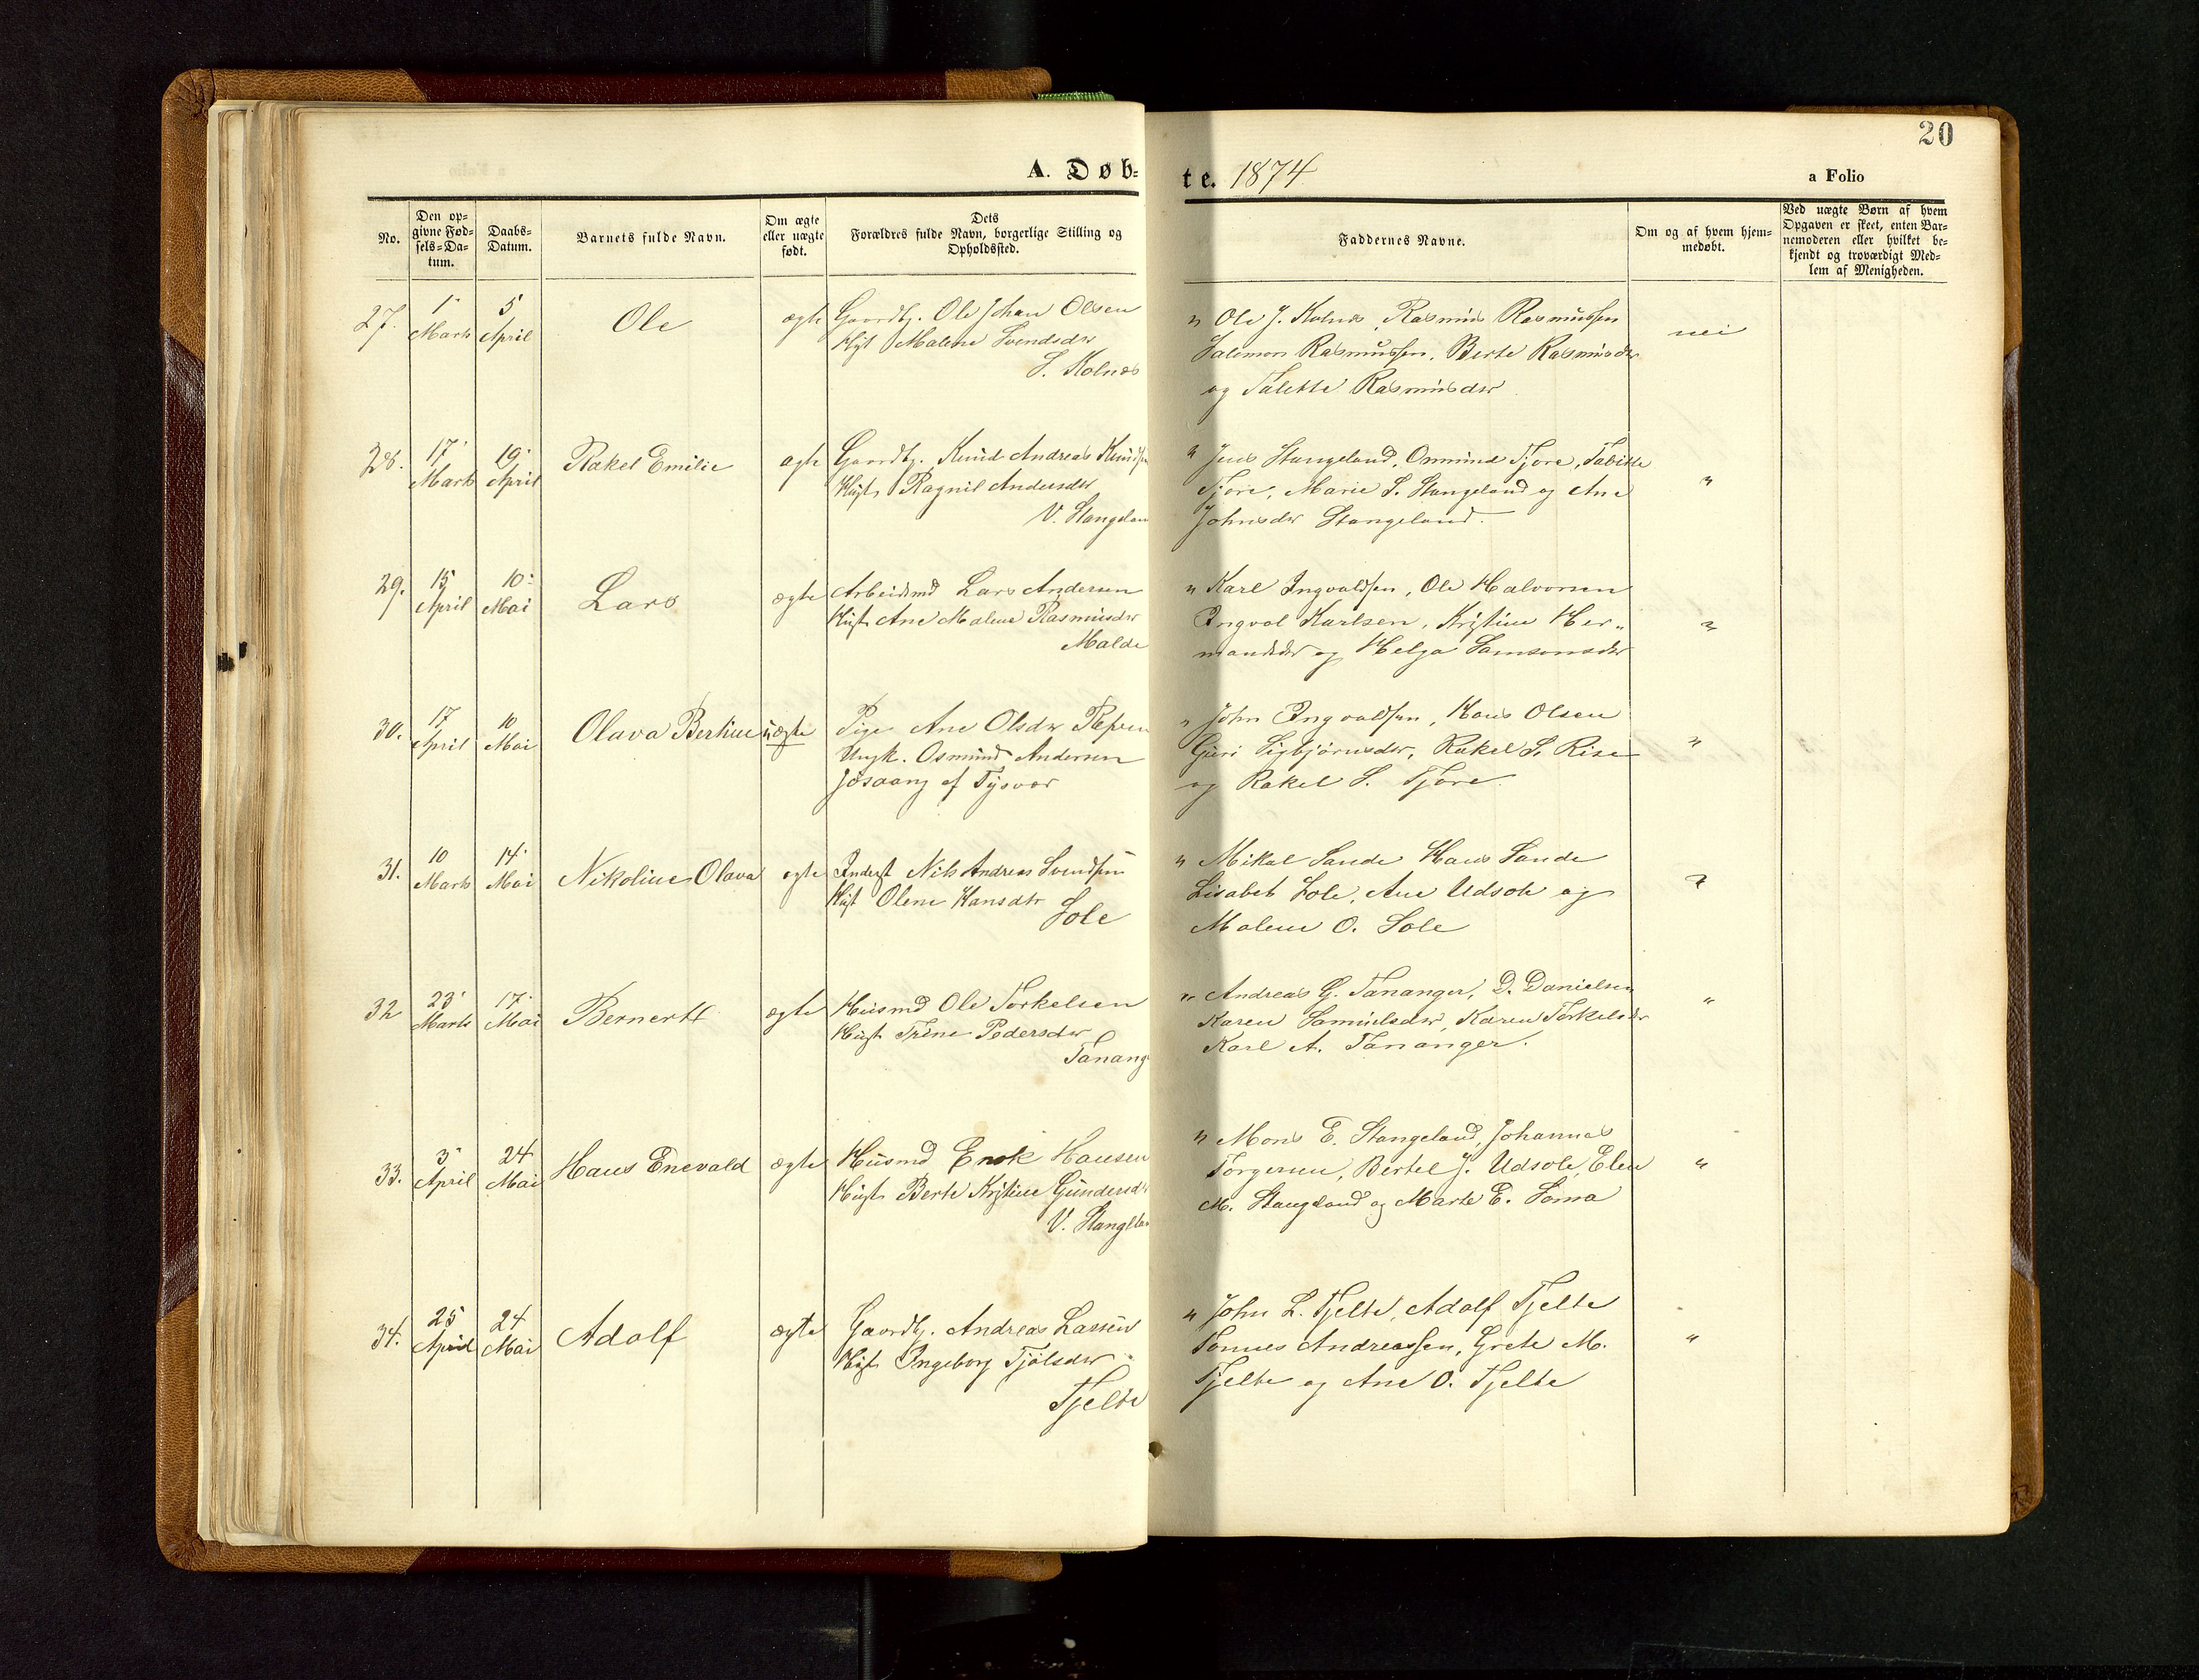 20
A. Døb-
te. 1874
a Folio
No.
Den op-
givne Fød-
sels-Da-
tum.
Daabs-
Datum.
Barnets fulde Navn.
Om ægte
eller uægte
født.
Dets
Forældres fulde Navn, borgerlige Stilling og
Opholdssted.
Faddernes Navne.
Om og af hvem hjem-
medøbt.
Ved uægte Børn af hvem
Opgaven er skeet, enten Bar-
nemoderen eller hvilket be-
kjendt og troværdigt Med-
lem af Menigheden.
27.
1
Marts
5
April
Ole
ægte
Gaardbg. Ole Johan Olsen
Hust Malene Svendsdtr
S. Kolnes
" Ole J. Kolnes, Rasmus Rasmussen
Salemon Rasmussen, Berte Rasmusdtr
og Talette Rasmusdtr
nei
28.
17
Marts
19
April
Rakel Emilie
ægte
Gaardbg. Knud Andreas
Hust Ragnil Andersdtr
V.
" Jens Stangeland, Onmund Tjore, Tabitte
Tjore, Marie S. Stangeland og Ane
Johnsdtr Stangeland.
"
29.
15
April
10
Mai
Lars
ægte
Arbeidsmd Lars Andersen
Hust Ane Malene Rasmusdtr
Malde
" Karl Ingvaldsen, Ole Halvorsen
Ingval Karlsen, Kristine Her-
mandsdtr og Helga Samsonsdtr
"
30.
17
April
10
Mai
Olava Bertine
uægte
Pige Ane Olsdtr
Ungk. Osmund Andersen
Jøsaang af Tysvær
" John Ingvaldsen, Hans Olsen
Guri Sigbjørnsdtr, Rakel S. Rise
og Rakel S. Tjore.
"
31.
10
Marts
14
Mai
Nikoline Olava
ægte
Inderst Nils Andreas Svendsen
Hust Olene Hansdtr
Sole
" Mikal Sande Hans Sande
Lisabet Sole, Ane Udsole og
Malene O. Sole
"
32
23
Marts
17
Mai
Bernert
ægte
Husmd Ole Torkelsen
Hust Trine Pedersdtr
Tanang
" Andreas G. Tananger, D. Danielsen
Karen Samuelsdtr, Karen Torkelsdtr
Karl A. Tananger.
"
33.
3
April
24
Mai
Hans Enevald
ægte
Husmd Enok Hansen
Hust Berte Kristine Gundersdtr
V.
" Mons E. Stangeland, Johannes
Torgersen, Bertel J. Udsole, Elen
M. Stangeland og Marte E. Soma
"
34.
25
April
24
Mai
Adolf
ægte
Gaardbg. Andreas Larsen
Hust Ingeborg Tjølsdtr
Tjelte
" John L. Tjelte, Adolf Tjelte
Tønnes Andreassen, Grete M.
Tjelte og Ane O. Tjelte
"